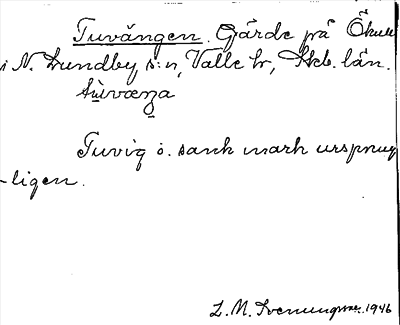 Tuvängen. Gärde på Ökull
i N. Lundby s:n, Valle hr, Skb. län.
tùvæŋa
Tuvig o. sank mark ursprung
-ligen.
L. M. Svenungsson. 1946